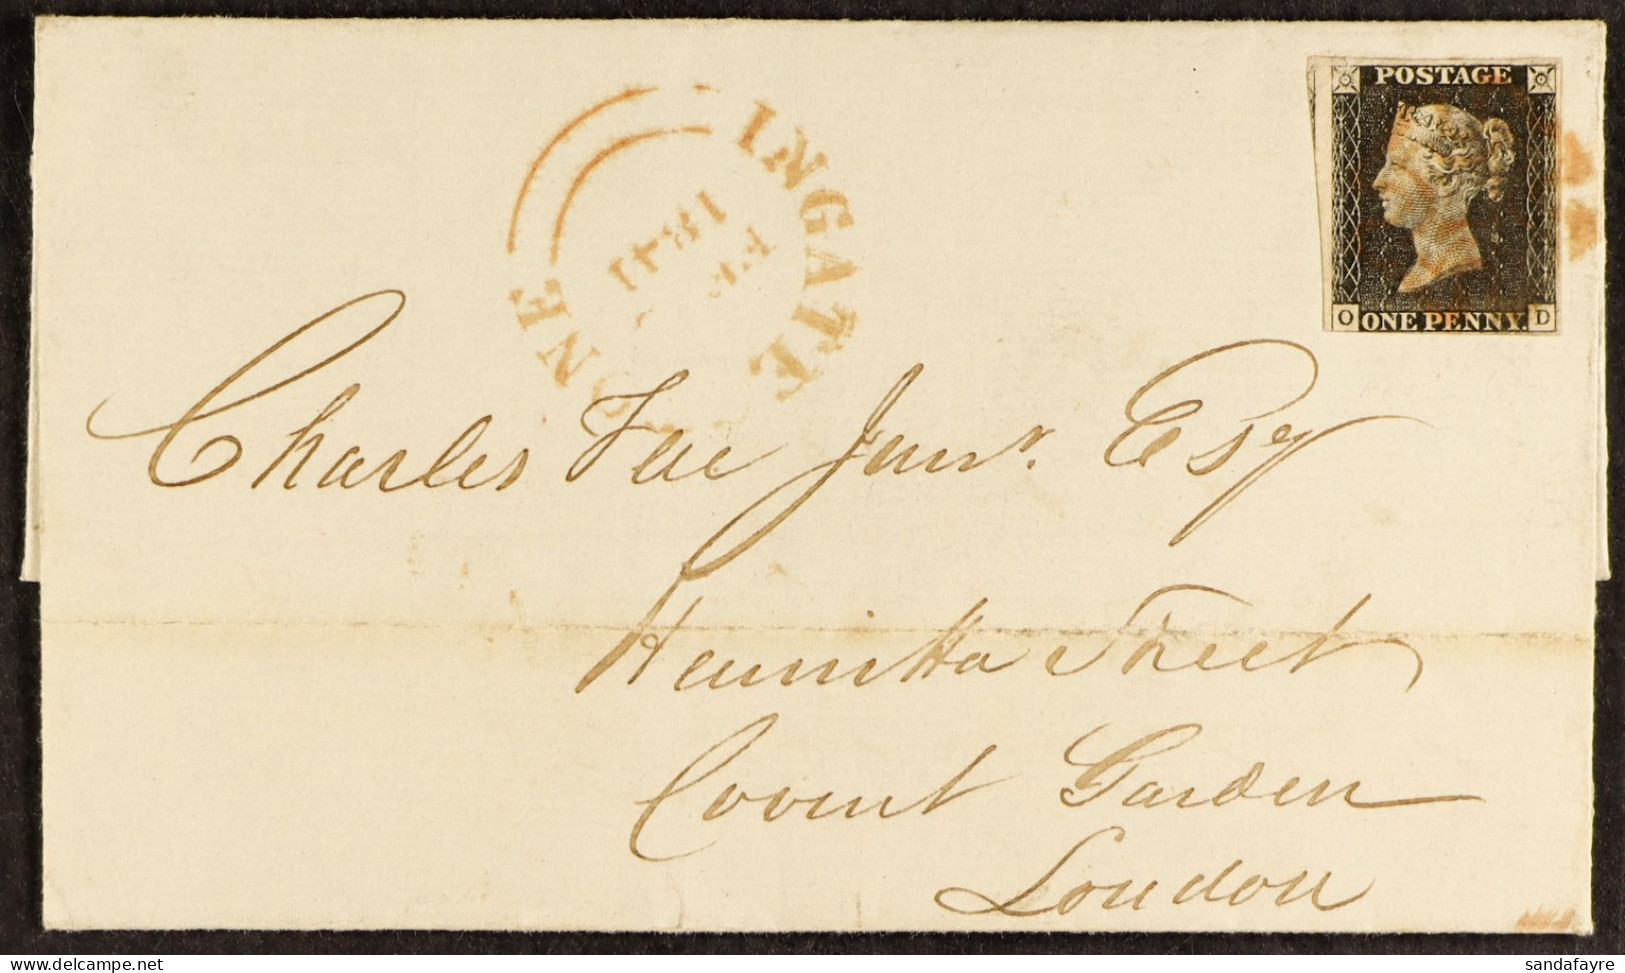 POSTAGE
O ONE PENNY. D
INGATE
NE
1841
Charles Fac Junr. Esqr
Henrietta Street
Covent Garden
London
sandafayre